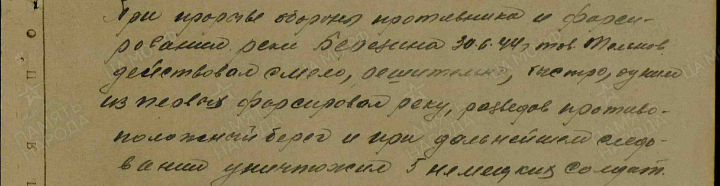 При прорыве обороны противника и форси-
ровании реки Березина 30.6.44г тов.
действовал смело, решительно, быстро, одним
из первых форсировал реку, разведов противо-
положный берег и при дальнейшем следо-
вании уничтожил 5 немецких солдат.